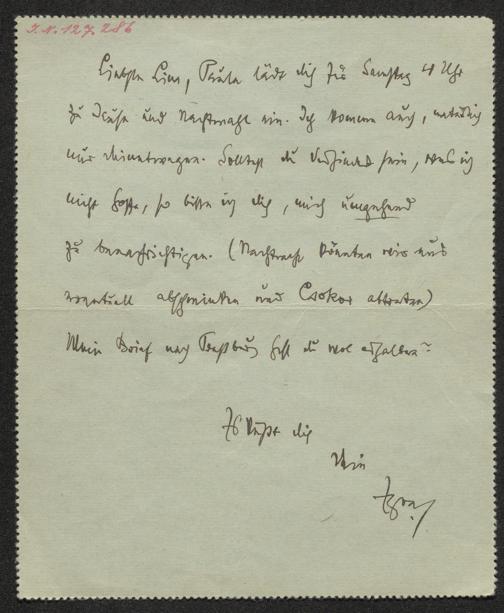 I.N. 127.286
Liebste Lina, Paula lädt dich für Samstag 4 Uhr
zu Jause und Nachtmahl ein. Ich komme auch, natürlich
nur deinetwegen. Solltest du verhindert sein, was ich
nicht hoffe, so bitte ich dich, mich umgehend
zu benachrichtigen. (Nachtmahl könnten wir uns
eventuell abschminken und Csokor abtreten)
Mein Brief nach Preßburg hast du wol erhalten?
Es küßt dich
Dein